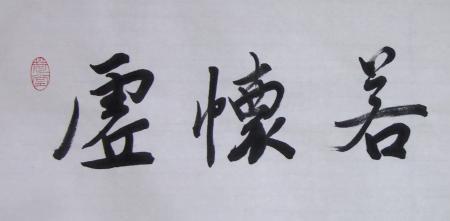 虛懷若